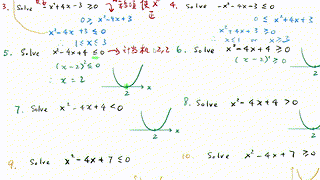 3. Solve x²+4x-3 ≥0
0 ≥ x²-4x+3
x²-4x+3 ≤0
1≤x≤3
4. Solve -x²-4x-3 ≤0
0 ≤ x²+4x+3
x²+4x+3 ≥0
5. Solve x²-4x+4 ≤0
(x-2)² ≤0
∴ x=2
2
6. Solve x²-4x+4 ≥0
(x-2)² ≥0
2
7. Solve x²-4x+4 <0
2
x
8. Solve x²-4x+4 >0
2
9. Solve x²-4x+7 ≤0
10. Solve x²-4x+7 ≥0